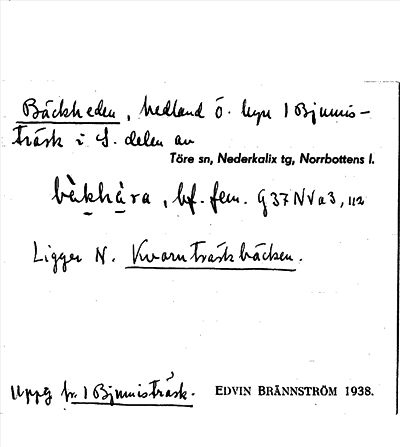 Bäckheden, hedland ö. byn 1 Bjumis-
träsk i S. delen av
Töre sn, Nederkalix tg, Norrbottens l.
bèkhàra, bf. fem. G37NVa3, 112
Ligger N. Kvarnträskbäcken.
Uppg fr. 1 Bjumisträsk. EDVIN BRÄNNSTRÖM 1938.